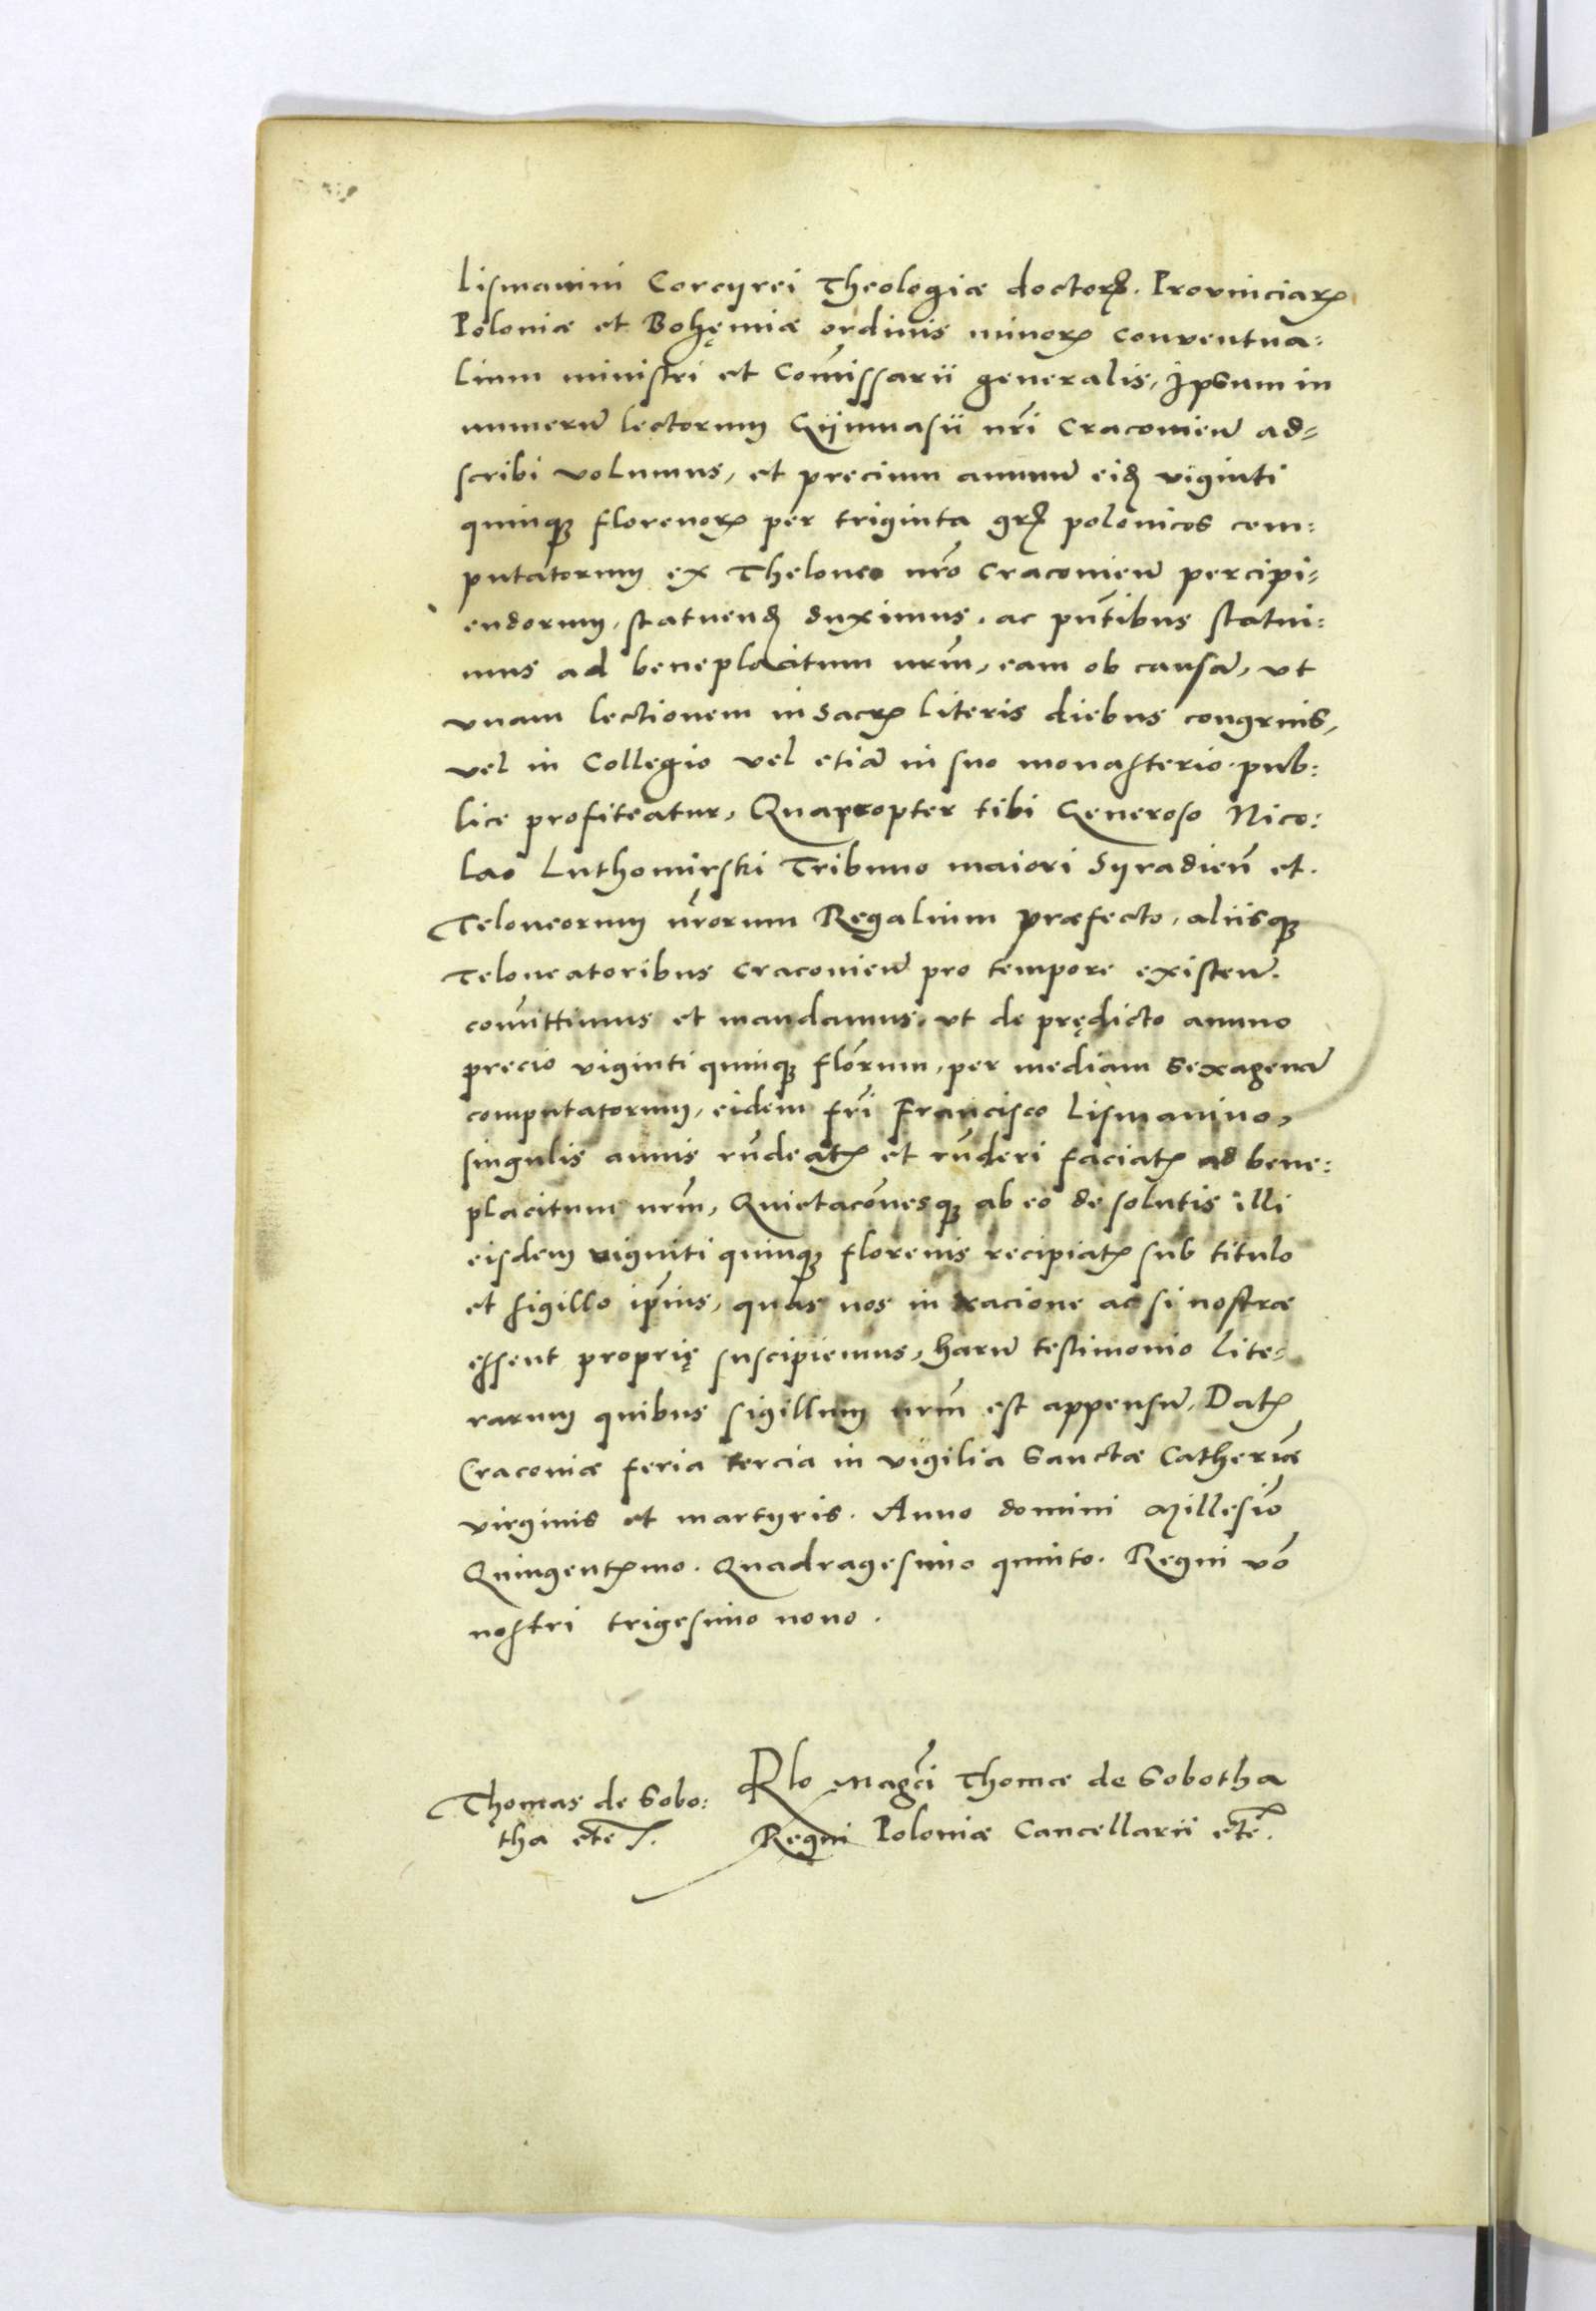 Lismanini Corcyrei Theologiæ doctorꝭ. Prouinciarꝝ
Poloniæ et Bohęmiæ ordinis minorꝝ conuentua:
lium ministri et Com̄issarii generalis, Ipsum in
numerū lectorum Gijmnasii nr̄i Cracouien̄ ad=
scribi volumus, et precium annuū eidꝫ viginti
quinqꝫ florenorꝝ per triginta gr̄ꝭ polonicos com:
putatorum ex Theloneo nr̄o Cracouien̄ percipi=
endorum, statuendꝫ duximus. ac pn̄tibus statui:
mus ad beneplacitum nrm̄, eam ob causā, vt
vnam lectionem in sacrꝭ literis diebus congruis,
vel in Collegio vel etiā in suo monasterio pub:
lice profiteatur, Quapropter tibi Generoso Nico:
lao Luthomirski Tribuno maiori Syradien̄ et.
Teloneorum nr̄orum Regalium præfecto, aliisqꝫ
Teloneatoribus Cracouien̄ pro tempore existen̄.
com̄ittimus et mandamus, vt de prędicto annuo
precio viginti quinqꝫ flor̄um, per mediam sexagenā
computatorum, eidem fr̄i Francisco Lismanino,
singulis annis rn̄deatꝭ et rn̄deri faciatꝭ ad bene:
placitum nrm̄, Quietacōnesqꝫ ab eo de solutis illi
eisdem viginti quinqꝫ florenis recipiatꝭ sub titulo
et sigillo ip̄ius, quas nos in racione ac si nostræ
essent proprię suscipiemus, harū testimonio lite=
rarum quibus sigillum nrm̄ est appensū, Datꝭ
Cracouiæ feria tercia in vigilia Sanctæ Catherīæ
virginis et martyris. Anno domini Millesīo
Quingentꝭmo. Quadragesimo quinto. Regni vō
nostri trigesimo nono.
Thomas de Sobo:
tha etc̄.
Rlo Magc̄i Thomæ de Sobotha
Regni Poloniæ Cancellarii etc̄.